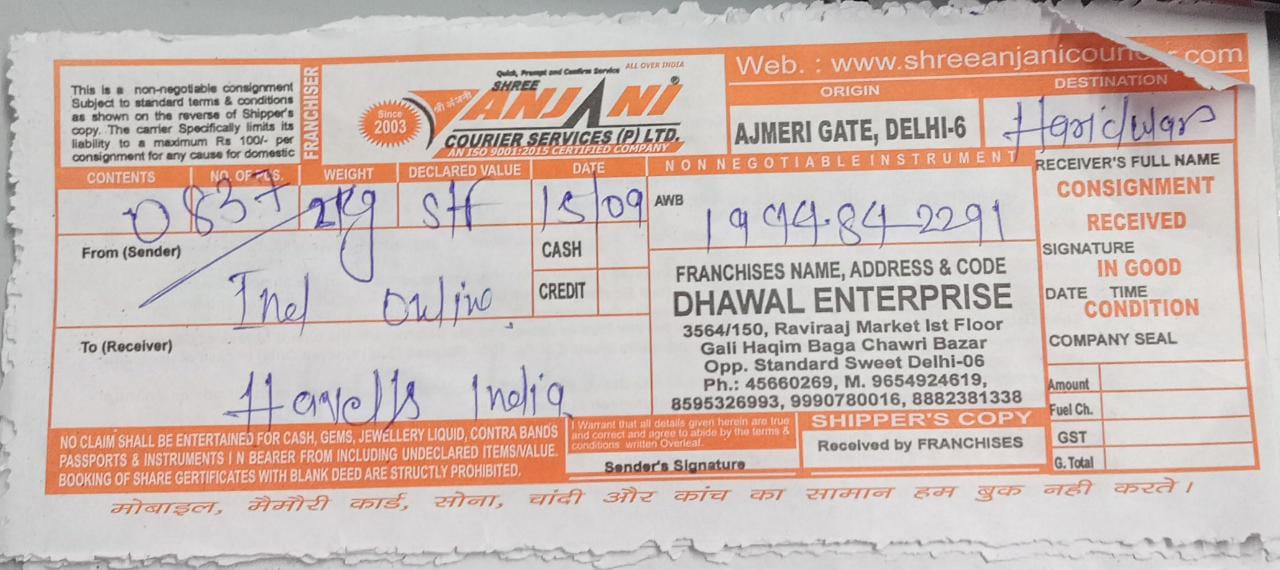 This is a non-negotiable consignment
Subject to standard terms & conditions
as shown on the reverse of Shipper's
copy. The carrier Specifically limits its
liability to a maximum Rs 100/- per
consignment for any cause for domestic
FRANCHISER
Quick, Prompt and Confirm Service ALL OVER INDIA
Since
2003
श्री अंजनी
SHREE
ANJANI
COURIER SERVICES (P) LTD.
AN ISO 9001:2015 CERTIFIED COMPANY
Web. : www.shreeanjanicourier.com
ORIGIN
DESTINATION
AJMERI GATE, DELHI-6
Haridwar
CONTENTS NO. OF PCS. WEIGHT DECLARED VALUE DATE
0837 2Kg 15/09
NON NEGOTIABLE INSTRUMENT
AWB
1994842291
From (Sender)
Ind Online
CASH
CREDIT
To (Receiver)
Havells India
FRANCHISES NAME, ADDRESS & CODE
DHAWAL ENTERPRISE
3564/150, Raviraaj Market Ist Floor
Gali Haqim Baga Chawri Bazar
Opp. Standard Sweet Delhi-06
Ph.: 45660269, M. 9654924619,
8595326993, 9990780016, 8882381338
RECEIVER'S FULL NAME
CONSIGNMENT
RECEIVED
SIGNATURE
IN GOOD
DATE TIME
CONDITION
COMPANY SEAL
Amount
Fuel Ch.
GST
G. Total
NO CLAIM SHALL BE ENTERTAINED FOR CASH, GEMS, JEWELLERY LIQUID, CONTRA BANDS
PASSPORTS & INSTRUMENTS I N BEARER FROM INCLUDING UNDECLARED ITEMS/VALUE.
BOOKING OF SHARE GERTIFICATES WITH BLANK DEED ARE STRUCTLY PROHIBITED.
I Warrant that all details given herein are true
and correct and agree to abide by the terms &
conditions written Overleaf.
Sender's Signature
SHIPPER'S COPY
Received by FRANCHISES
मोबाइल, मैमौरी कार्ड, सोना, चांदी और कांच का सामान हम बुक नही करते।